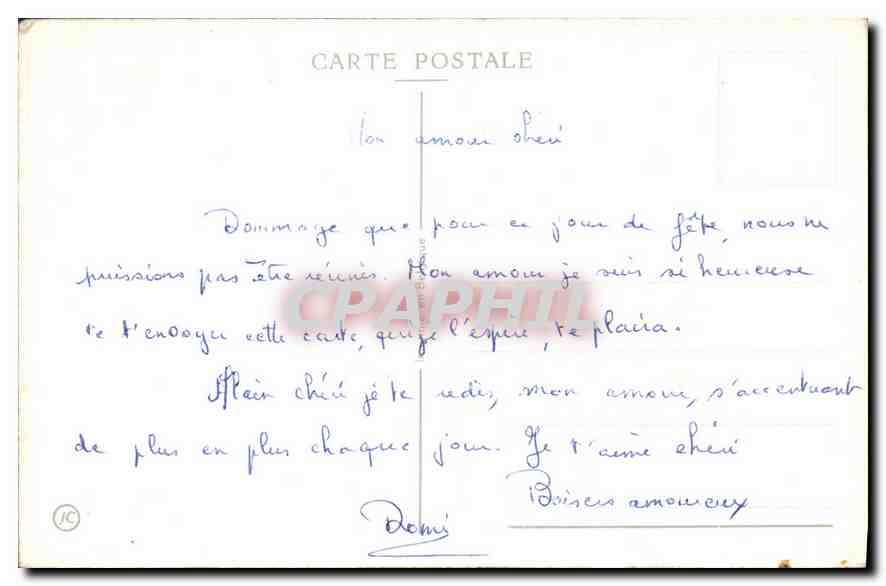 CARTE POSTALE
Mon amour chéri
Dommage que pour ce jour de fête, nous ne
puissions pas être réunis. Mon amour je suis si heureuse
de t'envoyer cette carte, qui je l'espère, te plaira.
Alain chéri je te redis, mon amour, s'accentuant
de plus en plus chaque jour. Je t'aime chéri
Baisers amoureux
Domi
CPAPHIL
JC